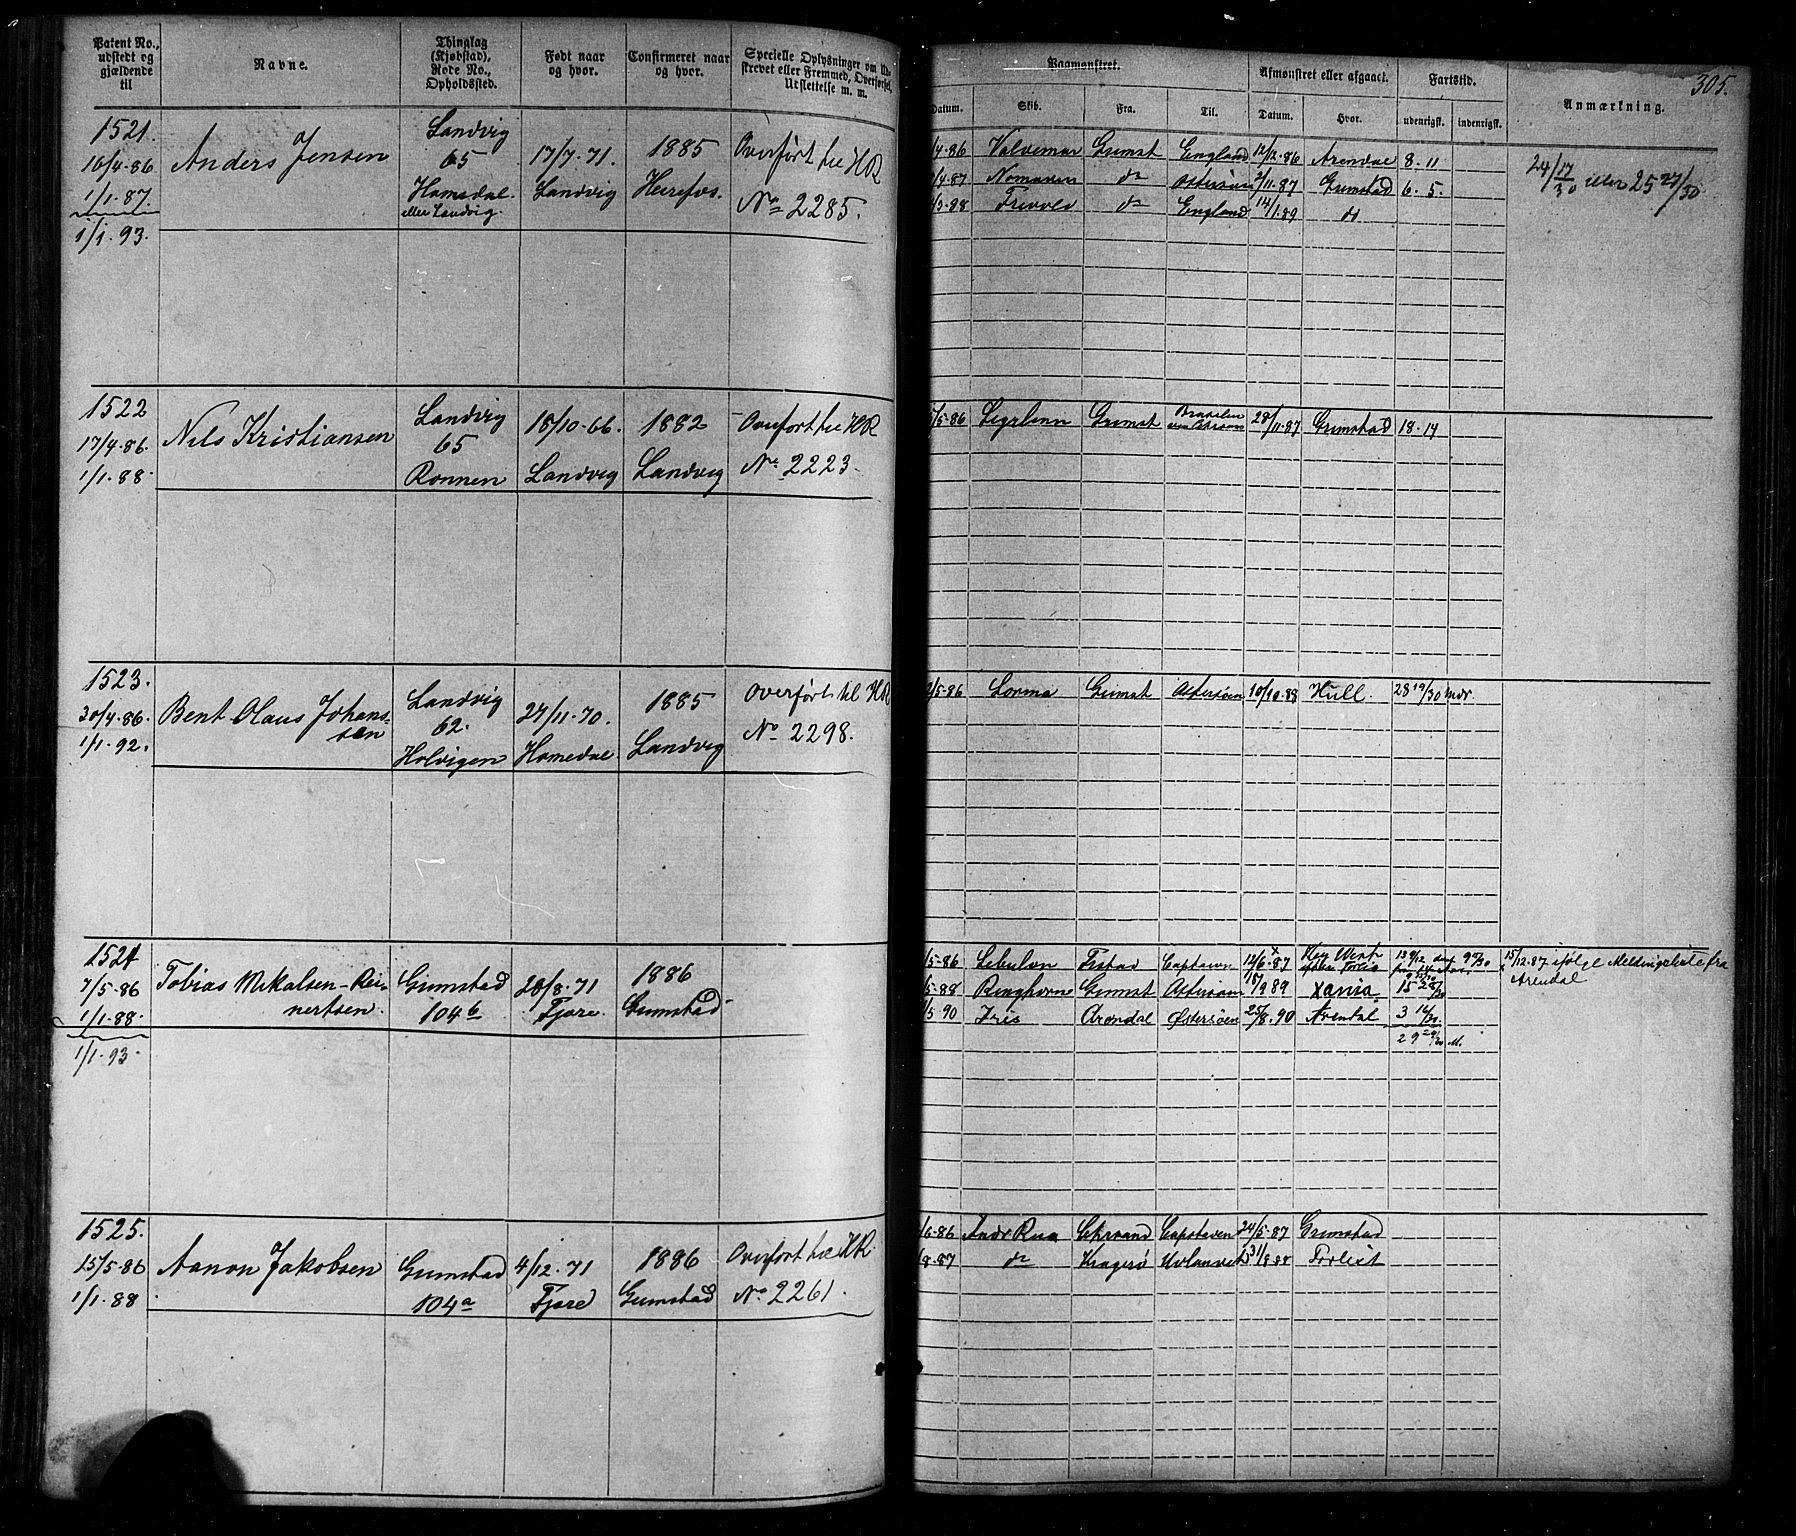 305.
Patent No., udstedt og gjældende til
Navne.
Thinglag (Kjøbstad), Rode No., Opholdssted.
Født naar og hvor.
Confirmeret naar og hvor.
Specielle Oplysninger om
strevet eller Fremmed, Overførsel, Udslettelse m. m.
Paamønstret.
Afmønstret eller afgaaet.
Fartstid.
Anmærkning.
Datum. Skib. Fra. Til. Datum. Hvor. udenrigsk. indenrigsk.
1521.
10/4-86
1/1.87.
1/1.93.
Anders Jensen
Landvig
65
Homedal.
eller Landvig.
17/7.71.
Landvig
1885
Heirefos.
Overført til HR
No 2285.
/4-86 Valdemar Grimst England 12/12.86 Arendal 8.11
/4.87 Nomaden do Østersøen 2/11.87 Grimstad 6.5.
/3-88 Trevold do England 14/1.89 do
24/17/30 eller 25 27/30
1522
17/4-86.
1/1.88.
Nils Kristiansen
Landvig
65
Ronnen
18/10-66.
Landvig
1882
Landvig
Overført til HR
No 2223.
/5-86 Grimst 28/11.87 Grimstad 18.14
1523.
30/4-86.
1/1.92.
Bent Olaus Johans-
sen
Landvig
62.
Holvigen
27/11.70.
Homedal.
1885
Landvig
Overført til HR
No 2298.
/5-86 Lorma Grimst Østersøen 10/10-88 Hull. 28 19/30 Mdr.
1524
7/5-86
1/1.88.
1/1.93.
Tobias Mikalsen-Rei-
nertsen.
Grimstad
104b
28/8.71
Fjære.
1886
Grimstad
/5-86 Sebulon Capstaden 12/6.87 Key West
15/12.87 ifølge Meldingsliste fra
Arendal
/5-88 Ringhorne Grimst Østersøen /9 89 Xania.
/5 90 Iris Arendal Østersøen 25/8.90 Arendal 3 16/30.
29 29/30 M.
1525.
15/5-86
1/1.88
Aanon Jakobsen
Grimstad
104a
4/12.71
Fjære
1886
Grimstad
Overført til HR
No 2261.
/6-86 Capstaden 24/5-87 Grimstad
/8-87 do Kragerø 31/8.88 Forlist